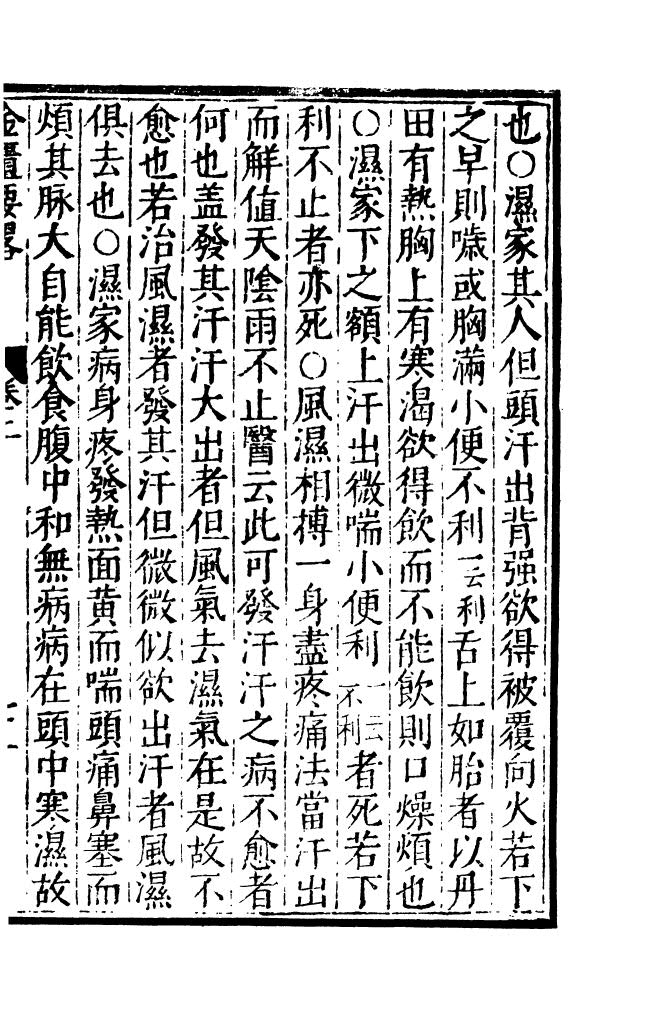 也〇濕家其人但頭汗出背强欲得被覆向火若下
之早則噦或胸滿小便不利一云利舌上如胎者以丹
田有熱胸上有寒渴欲得飲而不能飲則口燥煩也
〇濕家下之額上汗出微喘小便利一云不利者死若下
利不止者亦死〇風濕相搏一身盡疼痛法當汗出
而解值天陰雨不止醫云此可發汗汗之病不愈者
何也盖發其汗汗大出者但風氣去濕氣在是故不
愈也若治風濕者發其汗但微微似欲出汗者風濕
俱去也〇濕家病身疼發熱面黄而喘頭痛鼻塞而
煩其脉大自能飲食腹中和無病病在頭中寒濕故
金匱要畧 卷上